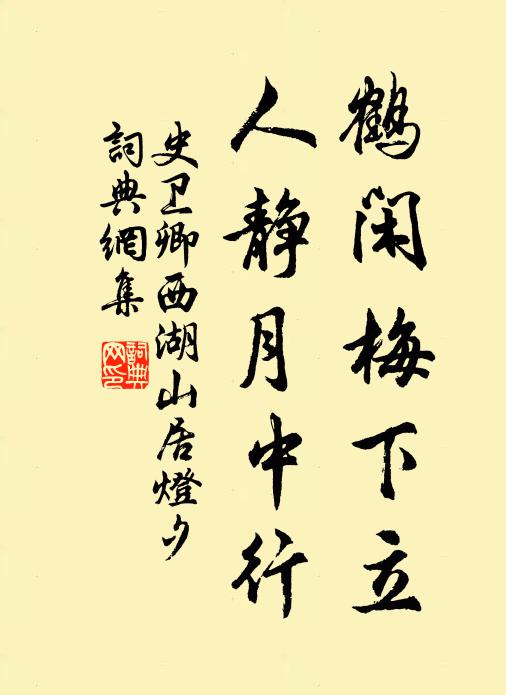 鹤闲梅下立
人静月中行
史卫卿西湖山居燈夕
詞典網集
詞典网印